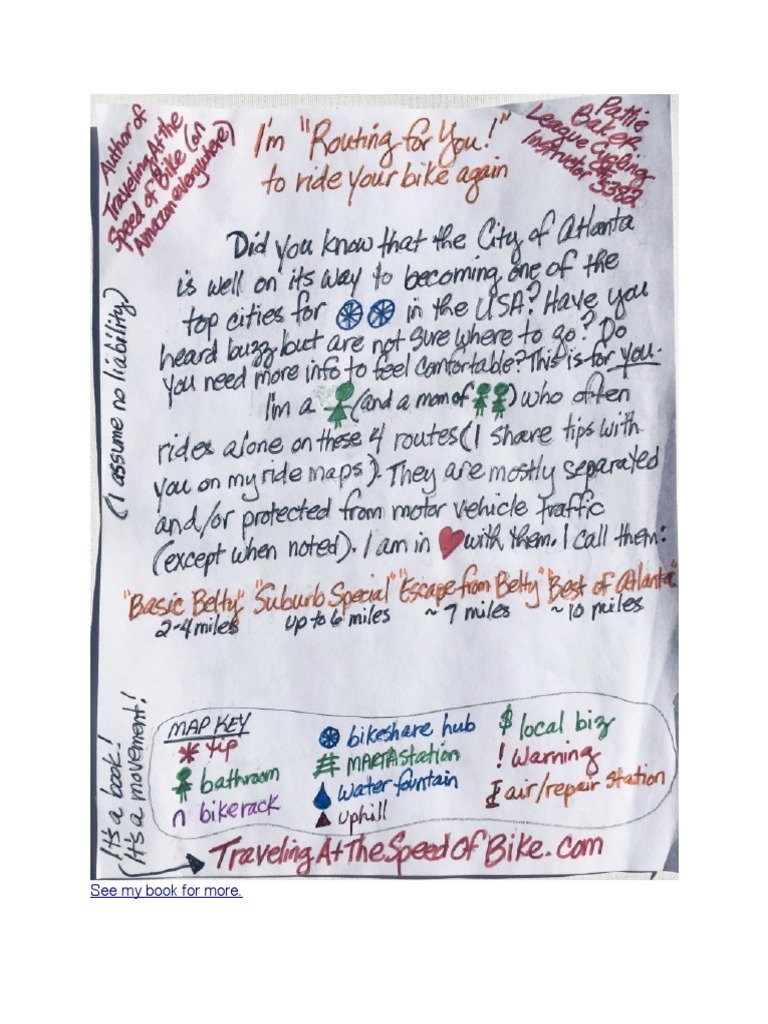 Author of
Traveling At the
Speed of Bike (on
Amazon everywhere)
I'm "Routing for You!"
to ride your bike again
Pattie
Baker
League Cycling
Instructor 5382
Did you know that the City of Atlanta
is well on its way to becoming one of the
top cities for in the USA? Have you
heard buzz but are not sure where to go? Do
you need more info to feel comfortable? This is for you.
I'm a (and a mom of ) who often
rides alone on these 4 routes (I share tips with
you on my ride maps). They are mostly separated
and/or protected from motor vehicle traffic
(except when noted). I am in with them. I call them:
(I assume no liability)
"Basic Belty" "Suburb Special" "Escape from Belty" "Best of Atlanta"
2-4 miles up to 6 miles ~ 7 miles ~ 10 miles
MAP KEY
* tip
bathroom
bike rack
bikeshare hub
MARTA station
water fountain
uphill
$ local biz
! warning
air/repair station
It's a book!
(It's a movement!
TravelingAtTheSpeedOfBike.com
See my book for more.